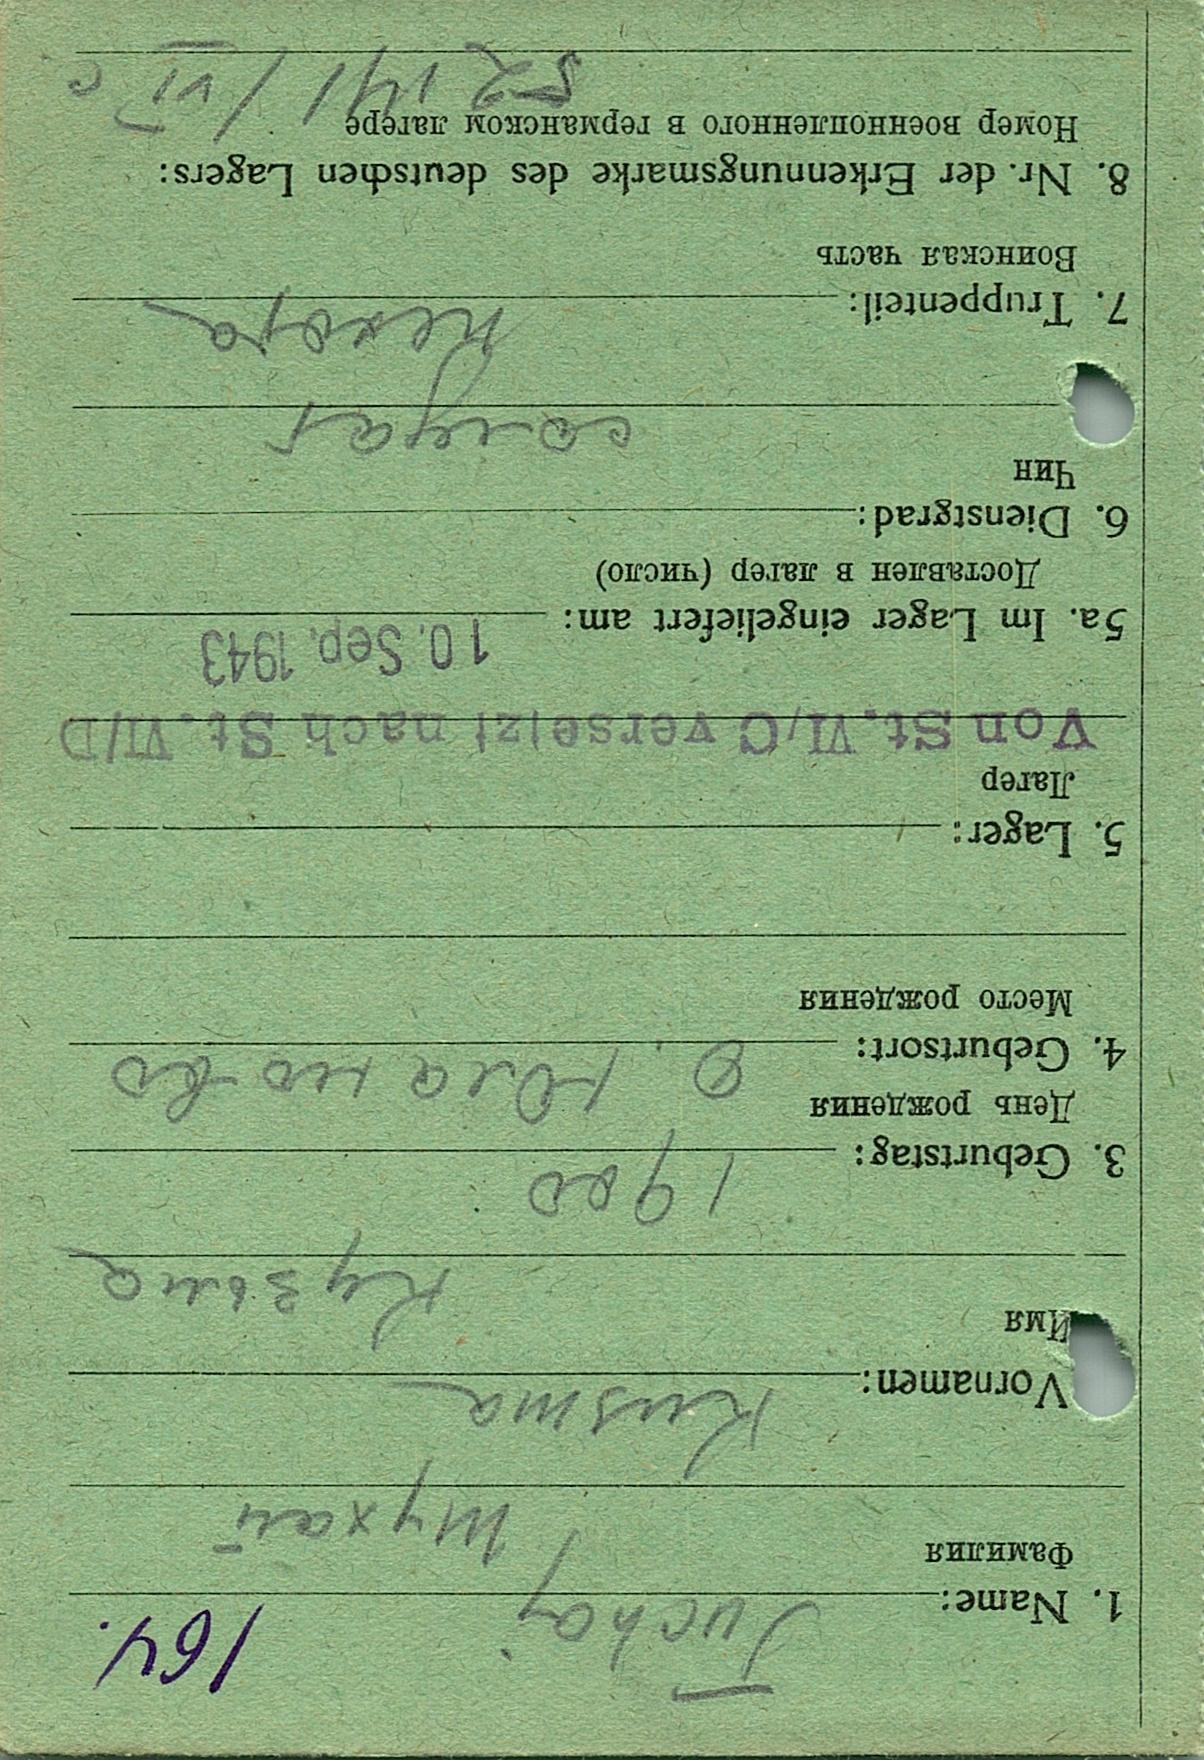 164.
1. Name: Tuchaj
Фамилия Тухай
Vornamen: Kusma
Имя Кузьма
3. Geburtstag: 1900
День рождения
4. Geburtsort:
Место рождения
5. Lager:
Лагер
Von St. VI/C versetzt nach St. VI/D
10. Sep. 1943
5a. Im Lager eingeliefert am:
Доставлен в лагер (число)
6. Dienstgrad:
Чин
солдат
7. Truppenteil: пехота
Воинская часть
8. Nr. der Erkennungsmarke des deutschen Lagers:
Номер военнопленного в германском лагере
52 141 / VI c